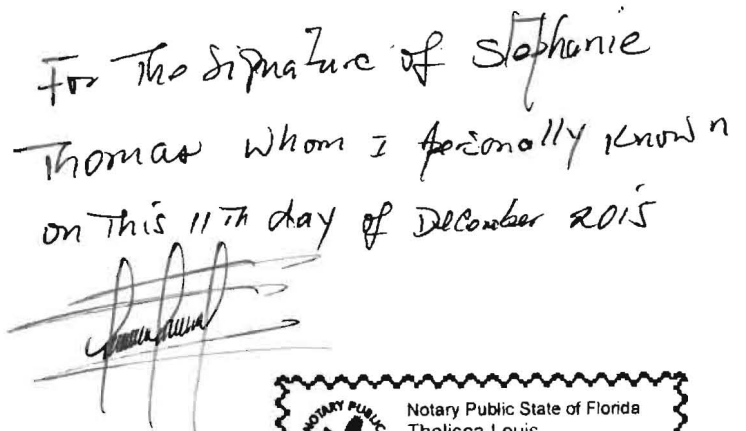 For The Signature of Stephanie
Thomas whom I personally known
on This 11Th day of December 2015
NOTARY PUBLIC
Notary Public State of Florida
Louis